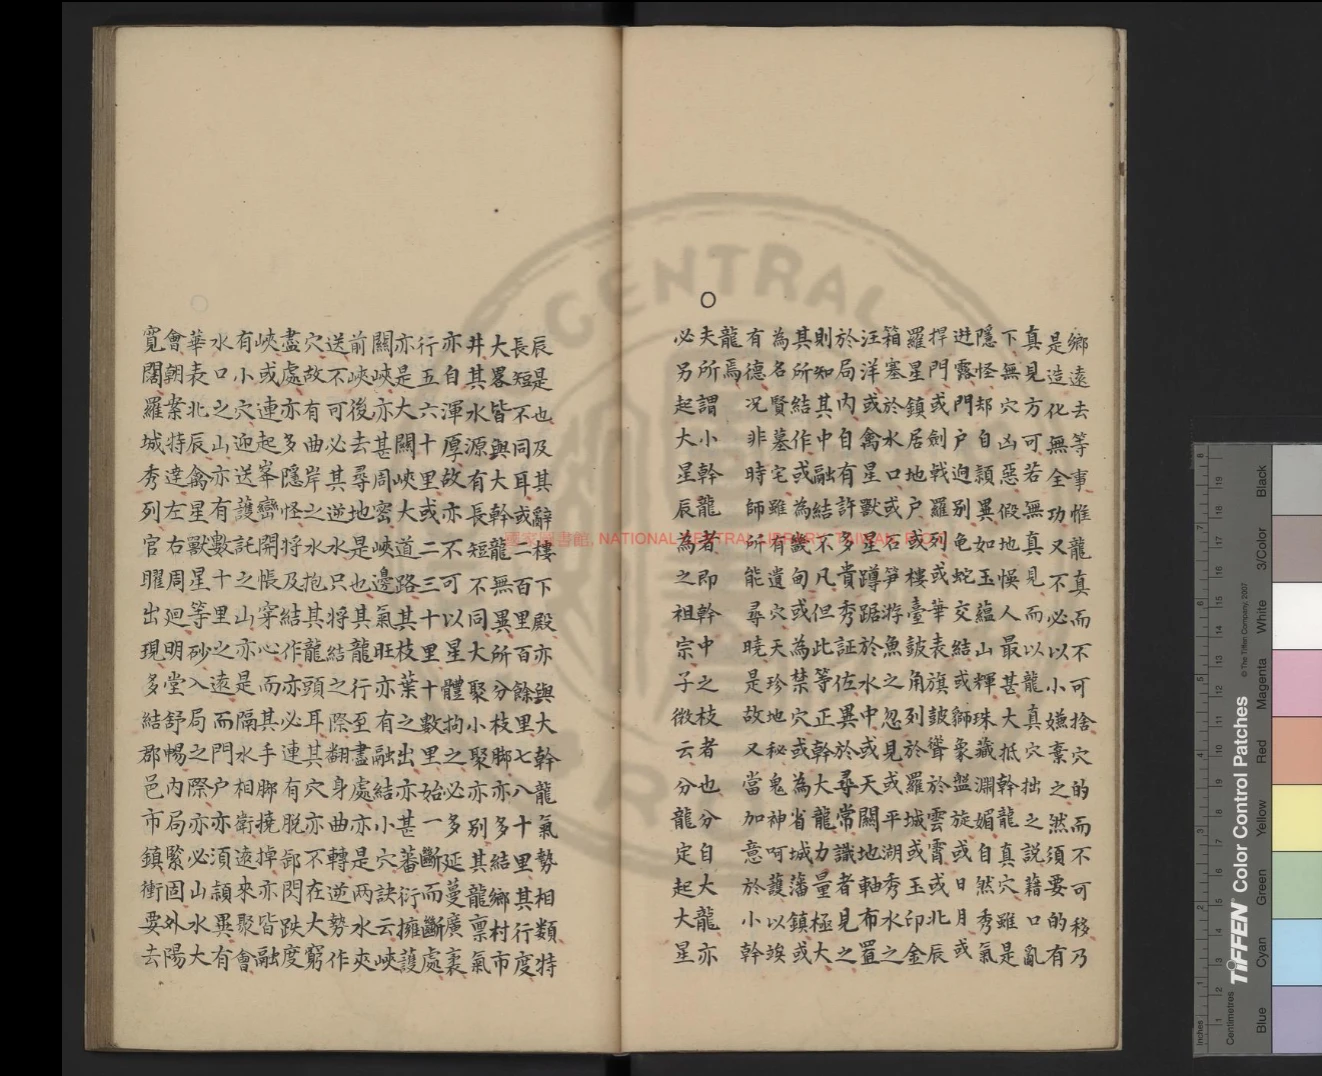 鄉遠去等事惟龍真而不可捨穴的而不可移乃
是造化無全功又不必以小嫌棄之然須要的有
真見方可若無真見而以龍真穴拙之説藉口亂
下無穴凶惡假地悞人最甚大抵幹龍真穴雖是
隱怪却自頴異如玉蘊山輝珠藏淵媚自然秀氣
迸露門户迥別龟蛇交結或獅象盤旋或日月或
捍門或劍戟羅列或華表旗皷聳於雲霄或北辰
羅星鎮居地户或樓臺皷角列於羅城或玉印金
箱塞於水口或石笋游魚之忽見或平湖秀水之
汪洋或禽星獸星蹲踞於水中或天關地軸布置
於局內自有許多貴秀証佐異於尋常識者見之
則知其中融結不凡但此等正幹大龍力量極大
其所結作或為畿甸或為禁穴或為省城藩鎮或
為名賢墓宅雖有遺穴天珍地秘鬼神呵護以竢
有德况非時師所能尋曉是故又當加意於小幹
龍焉
○
夫所謂小幹龍者即幹中之枝者也分自大龍亦
必另起大星辰為之祖宗子微云分龍定起大星
辰是也及其辭樓下殿亦與大幹龍氣勢相類特
長短不同耳或二百里百餘里七八十里其行度
大畧皆與大幹龍無異所分枝脚亦多結鄉村市
井其水源有長短不同大聚小聚亦別其龍禀氣
亦自渾厚故亦不可以星體拘之必多延蔓廣袤
行五六十里或二三十里十數里始一斷而斷處
亦是大關峽大道路其枝葉之出亦甚蕃衍擁護
關峽亦甚周密峽邊氣旺亦有融結小穴訣云峽
前峽後去尋地是也其龍行至盡處亦是兩水夾
送不可必其逆水只將結之際翻身曲轉逆勢作
穴故有曲岸之水抱其龍頭耳其穴亦不在大窮
盡處亦多隱怪將及結作亦必連有脱卸閃跌度
峽或連起峯巒開帳穿心而其手脚撓掉亦皆融
有小穴迎送護託之山亦是隔水相衛遠來聚會
水口之山亦有數十里之遠而門户亦須頴異有
華表北辰禽星獸星等砂入局之際亦必山水大
會朝案特達左右周廻明堂舒暢內局緊固外陽
寬闊羅城秀列官曜出現多結郡邑市鎮衝要去
國家圖書館, NATIONAL CENTRAL LIBRARY, TAIWAN, R.O.C
TIFFEN Color Control Patches
© The Tiffen Company, 2007
Inches
Centimetres
Blue
Cyan
Green
Yellow
Red
Magenta
White
3/Color
Black